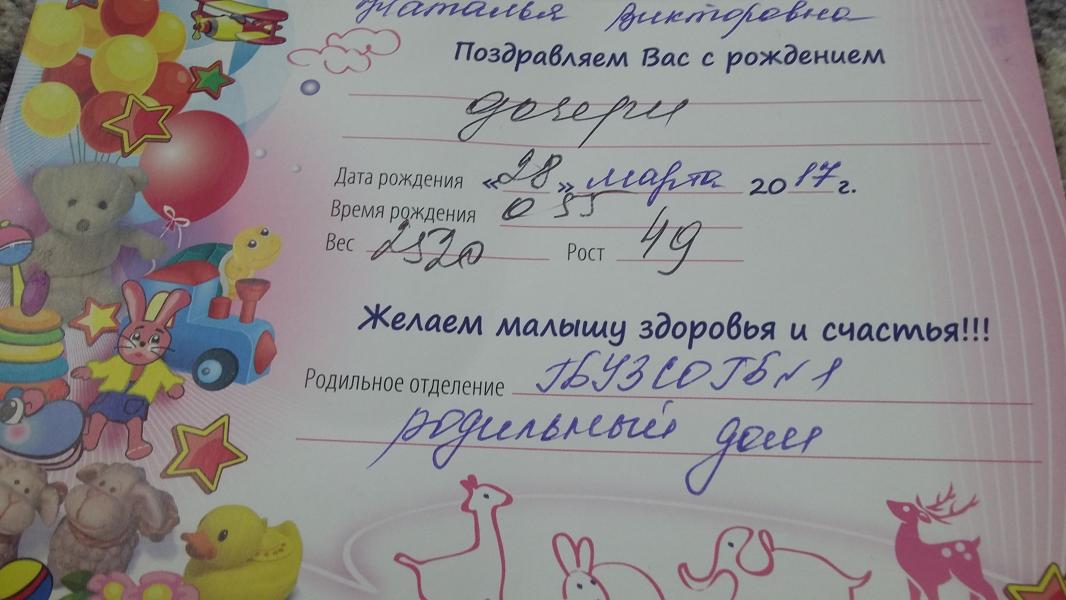 Наталья Викторовна
Поздравляем Вас с рождением
дочери
Дата рождения «28» марта 2017г.
Время рождения 0 55
Вес 2520 Рост 49
Желаем малышу здоровья и счастья!!!
Родильное отделение ГБУЗ СО ГБ №1
родильный дом